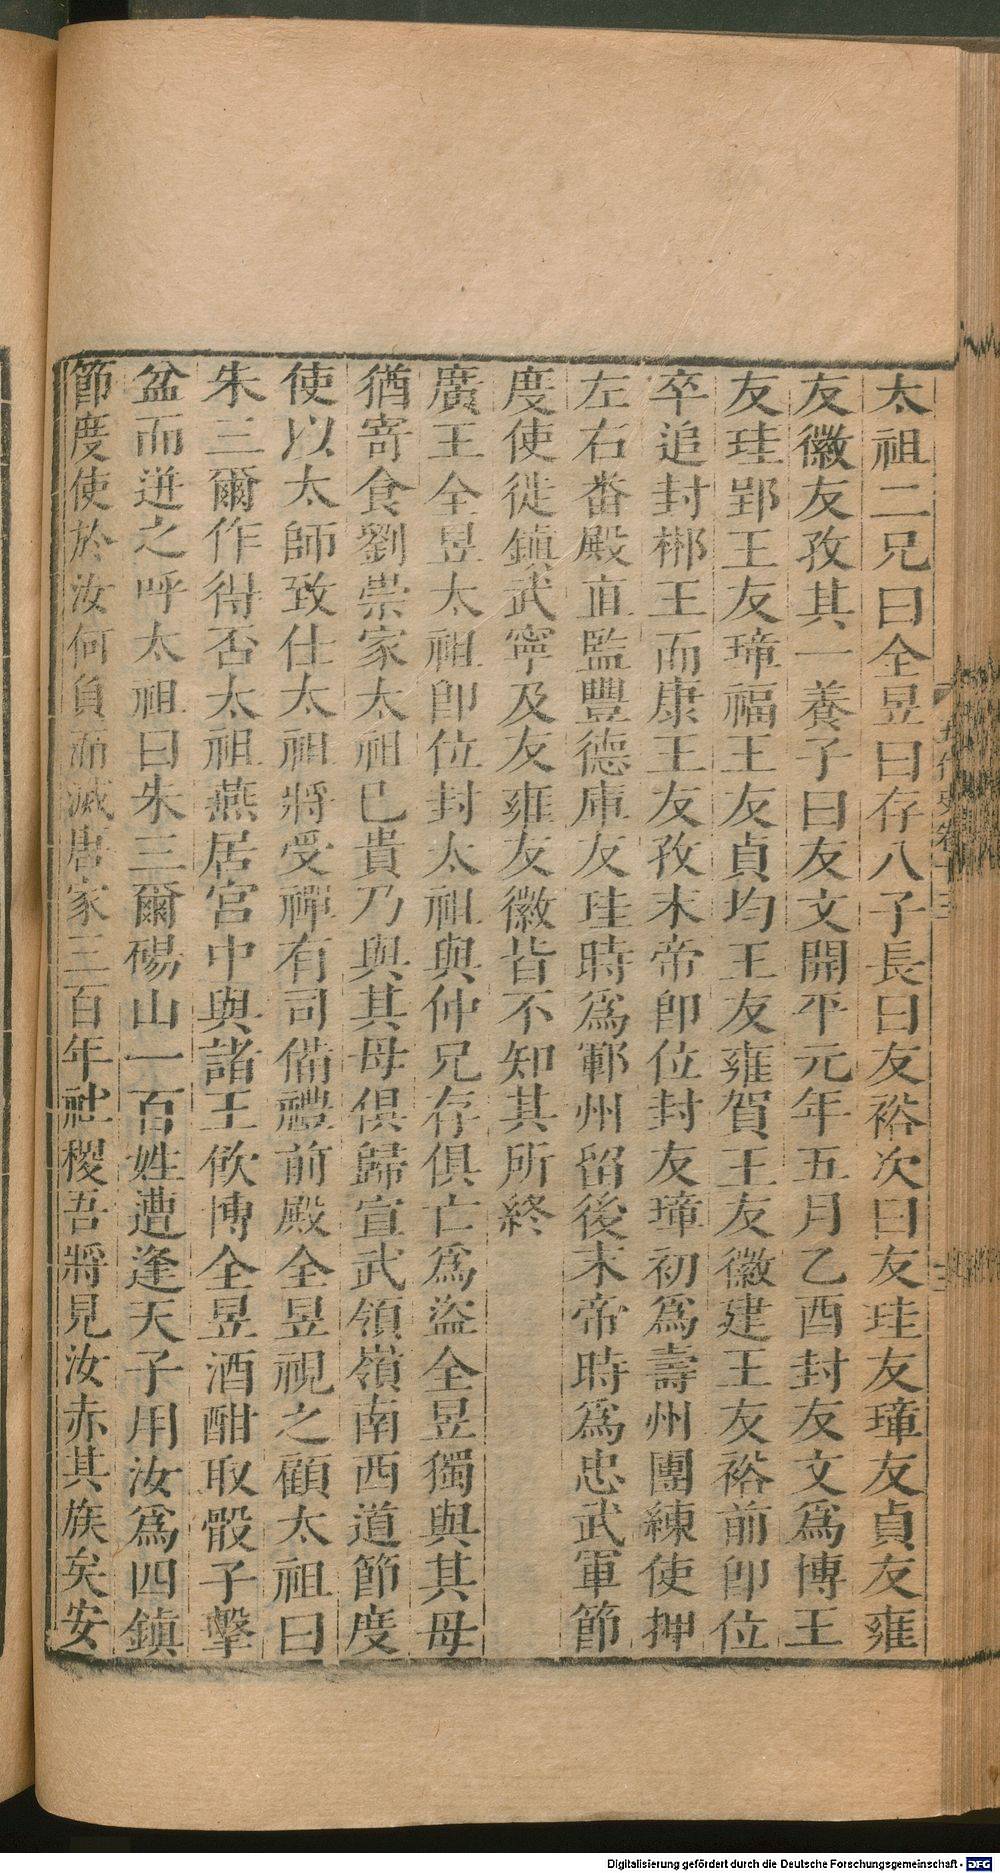 太祖二兄曰全昱曰存八子長曰友裕次曰友珪友璋友貞友雍
友徽友孜其一養子曰友文開平元年五月乙酉封友文爲博王
友珪郢王友璋福王友貞均王友雍賀王友徽建王友裕前卽位
卒追封郴王而康王友孜末帝卽位封友璋初爲壽州團練使押
左右番殿直監豐德庫友珪時爲鄆州留後末帝時爲忠武軍節
度使徙鎮武寧及友雍友徽皆不知其所終
廣王全昱太祖卽位封太祖與仲兄存俱亡爲盜全昱獨與其母
猶寄食劉崇家太祖已貴乃與其母俱歸宣武領嶺南西道節度
使以太師致仕太祖將受禪有司備禮前殿全昱視之顧太祖曰
朱三爾作得否太祖燕居宮中與諸王飲博全昱酒酣取骰子擊
盆而迸之呼太祖曰朱三爾碭山一百姓遭逢天子用汝爲四鎮
節度使於汝何負而滅唐家三百年社稷吾將見汝赤其族矣安
五代史卷十三
Digitalisierung gefördert durch die Deutsche Forschungsgemeinschaft - DFG